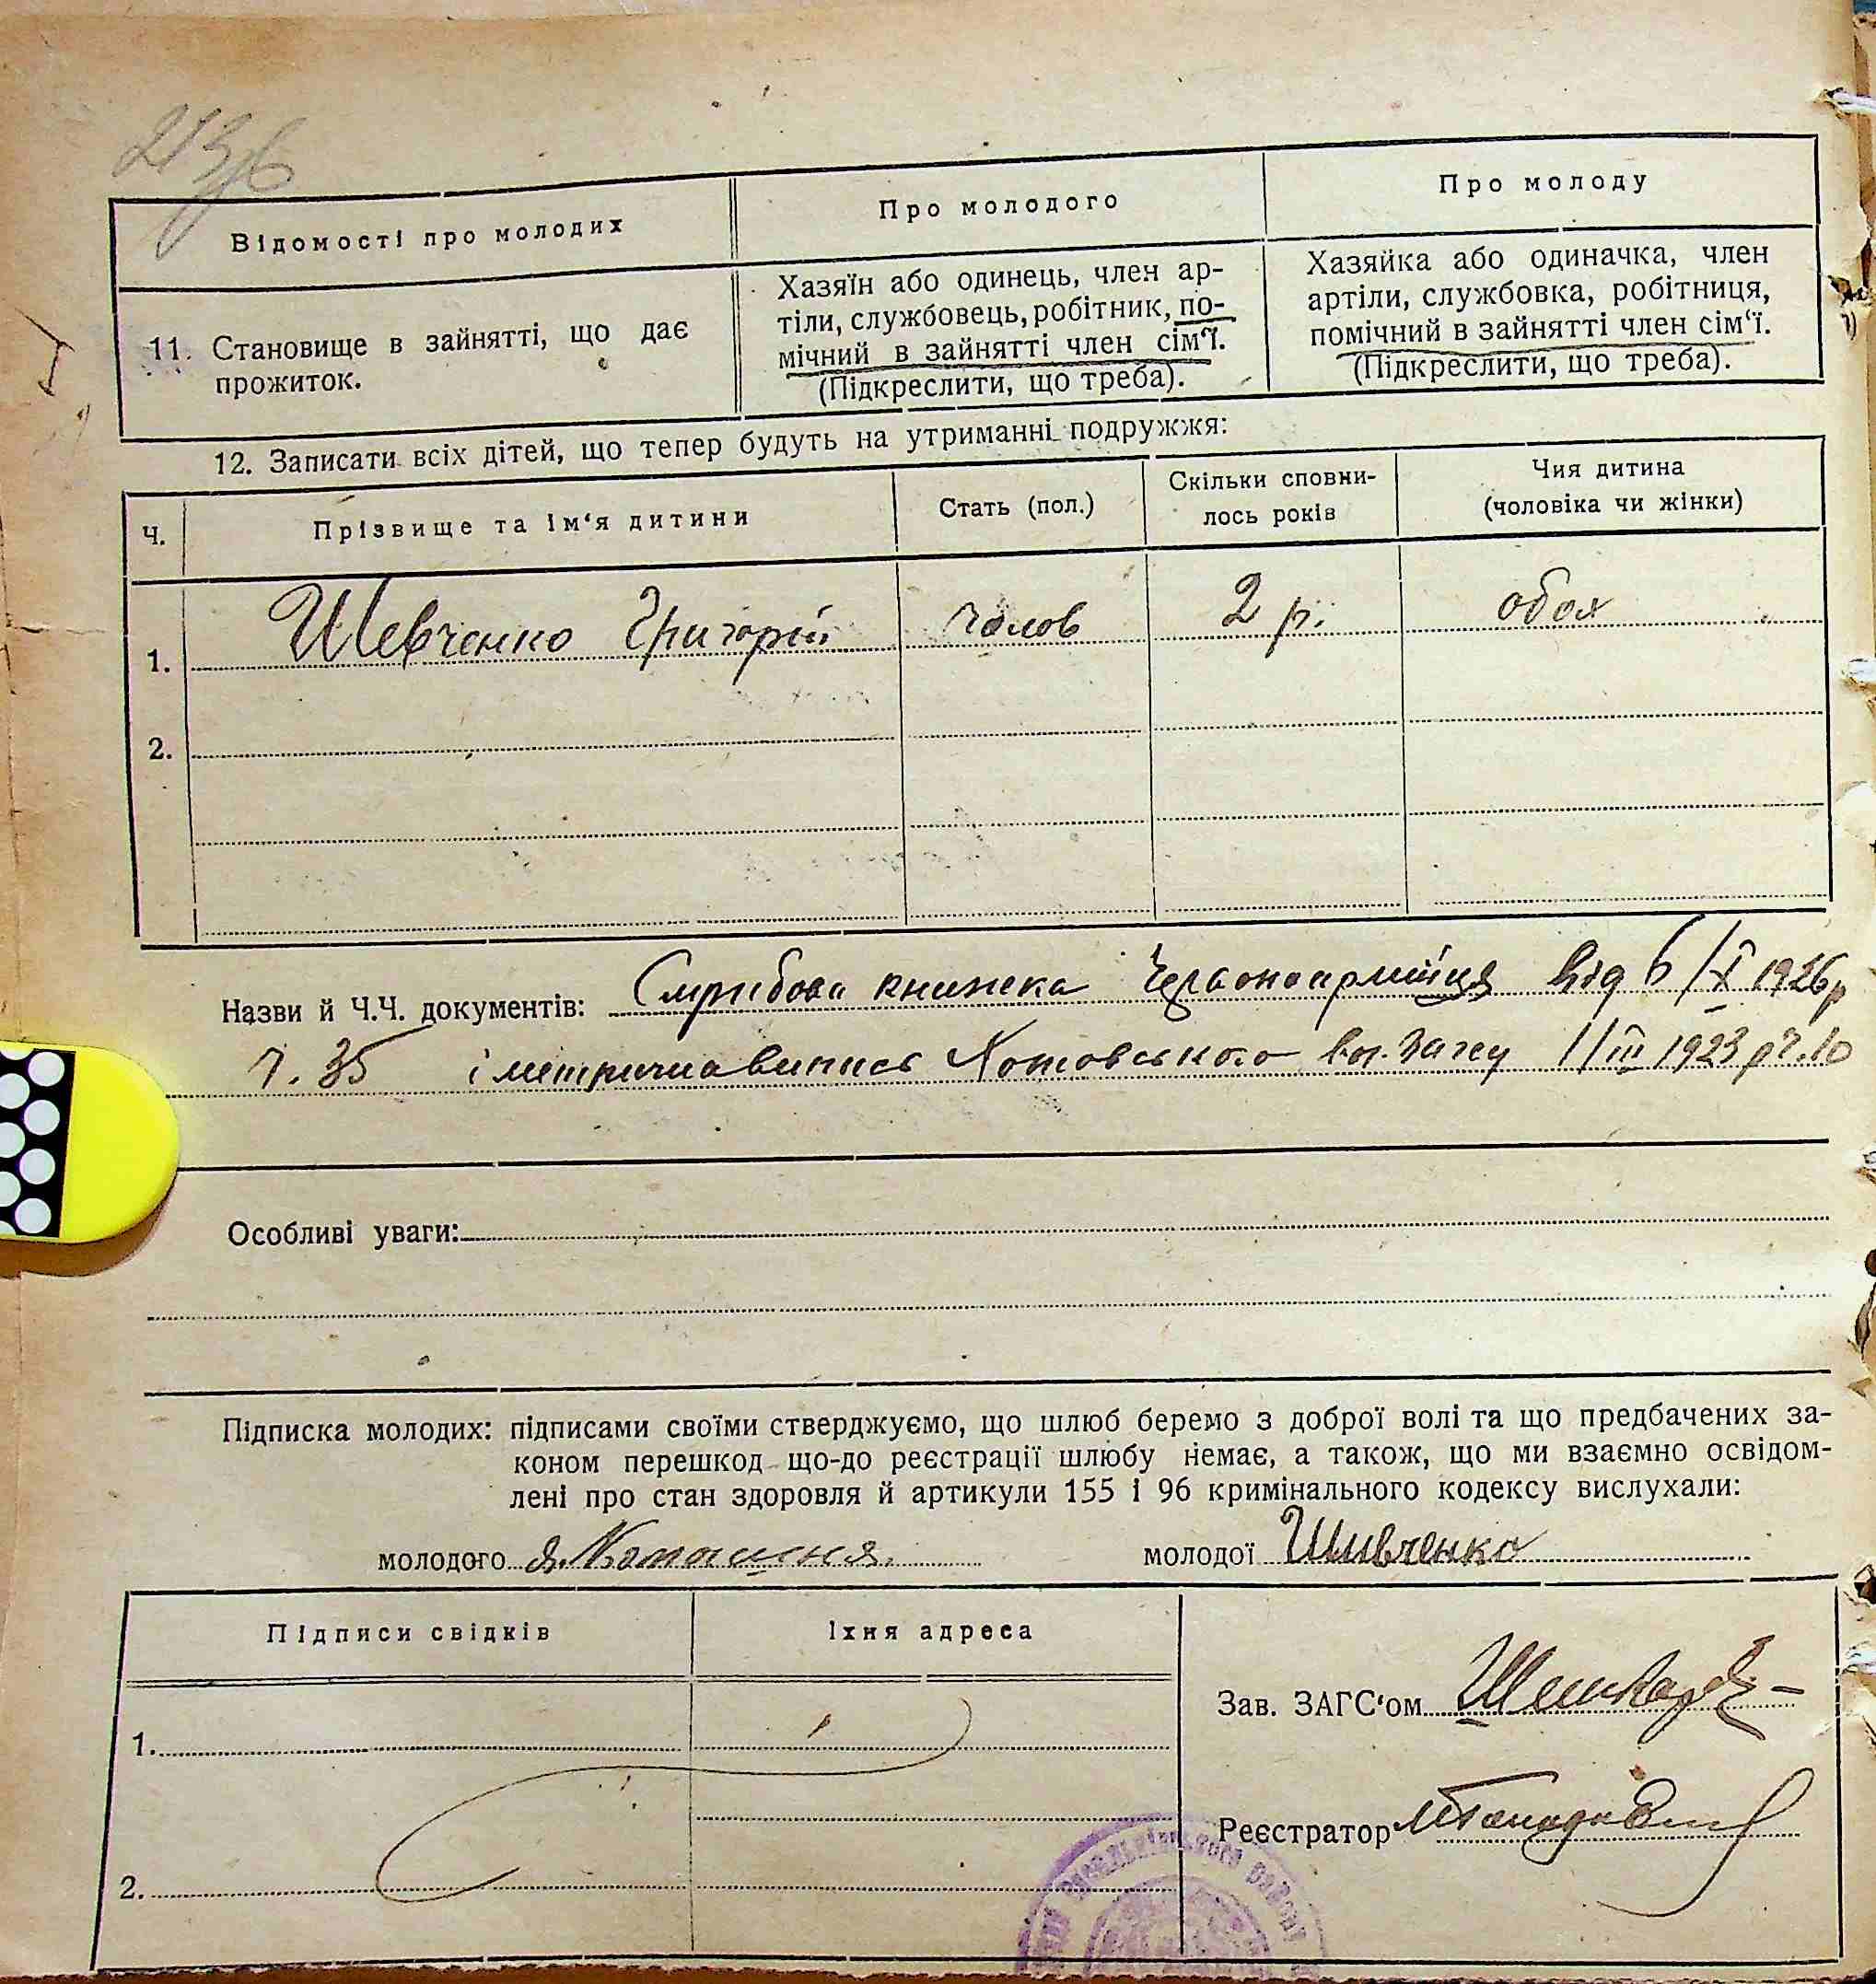 213/6
Відомості про молодих
Про молодого
Про молоду
11. Становище в зайнятті, що дає
прожиток.
Хазяїн або одинець, член ар-
тіли, службовець, робітник, по-
мічний в зайнятті член сім‘ї.
(Підкреслити, що треба).
Хазяйка або одиначка, член
артіли, службовка, робітниця,
помічний в зайнятті член сім‘ї.
(Підкреслити, що треба).
12. Записати всіх дітей, що тепер будуть на утриманні подружжя:
Ч.
Прізвище та ім‘я дитини
Стать (пол.)
Скільки сповни-
лось років
Чия дитина
(чоловіка чи жінки)
1. Шевченко Григорій чолов 2 р. обох
2.
Назви й Ч.Ч. документів: книжка Червоноармійця від 6/X 1926 р
ч. 35 і метрична випись Котовського Загсу 1/III 1923 р ч. 10
Особливі уваги:
Підписка молодих: підписами своїми стверджуємо, що шлюб беремо з доброї волі та що предбачених за-
коном перешкод що-до реєстрації шлюбу немає, а також, що ми взаємно освідом-
лені про стан здоровля й артикули 155 і 96 кримінального кодексу вислухали:
молодого молодої Шивченко
Підписи свідків
Їхня адреса
1.
2.
Зав. ЗАГС‘ом
Реєстратор